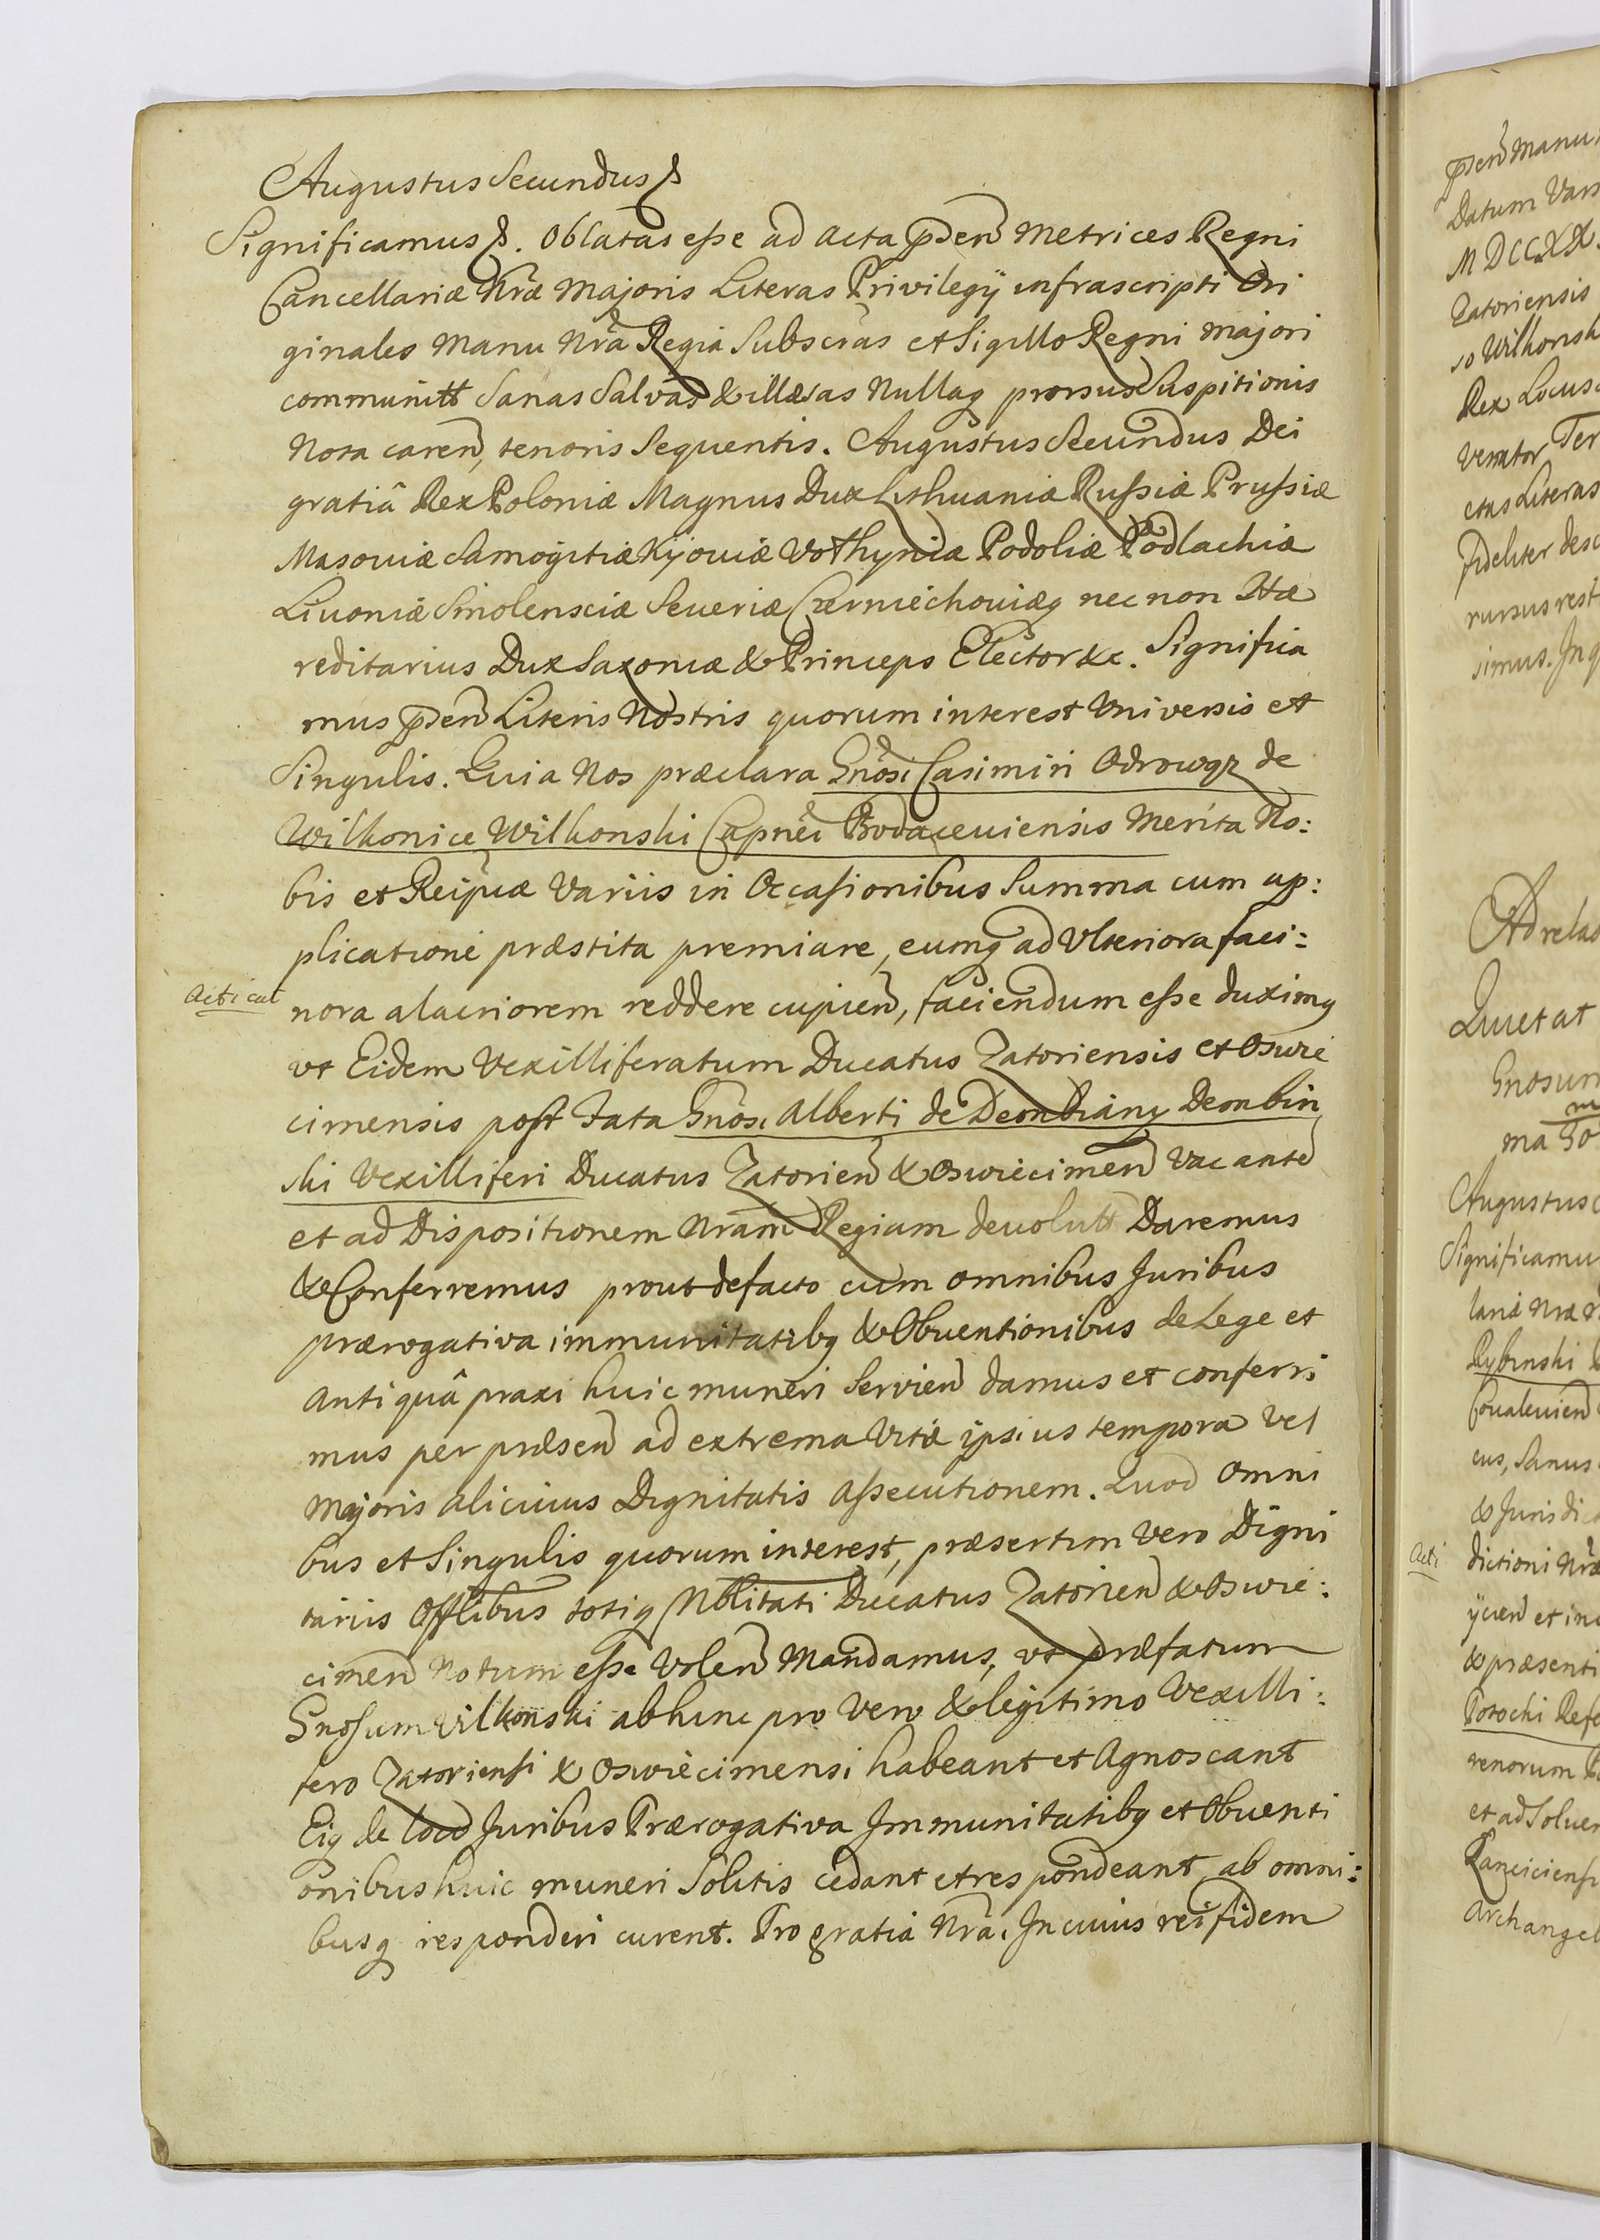 Augustus Secundus &
Significamus &. Oblatas esse ad Acta p̃sen̄ Metrices Regni
Cancellariæ Nr̃æ Majoris Literas Privilegÿ infrascripti Ori
ginales Manu Nrã Regia Subscrãs et Sigillo Regni majori
communitt Sanas Salvas & illæsas Nullaq prorsus Suspitionis
Nota caren̄, tenoris Sequentis. Augustus Secundus Dei
gratiâ Rex Poloniæ Magnus Dux Lithuaniæ Russiæ Prussiæ
Masoviæ Samogitiæ Kijoviæ Volhyniæ Podoliæ Podlachiæ
Livoniæ Smolensciæ Severiæ Czerniechoviæq nec non Hæ
reditarius Dux Saxoniæ & Princeps Elector &c. Significa
mus p̃sen̄ Literis Nostris quorum interest Universis et
Singulis. Quia Nos præclara Gnõsi Casimiri Odrowąz de
Wilkonice Wilkonski Capnẽi Bodaceviensis Merita No:
bis et Reipuæ Variis in Occasionibus Summa cum ap:
plicatione præstita premiare, eumq ad Ulteriora faci:
Acticat
nora alacriorem reddere cupien̄, faciendum esse duximq
ut Eidem Vexilliferatum Ducatus Zatoriensis et Oswie
cimensis post Fata Gnõsi Alberti de Dembiany Dembin
ski Vexilliferi Ducatus Zatorien̄ & Oswiecimen̄ Vacante
et ad Dispositionem Nram̃ Regiam devolutt Daremus
& Conferremus prout defacto cum omnibus Juribus
prærogativa immunitatibq & Obventionibus de Lege et
Antiquâ praxi huic muneri Servien̄ damus et conferri
mus per præsen̄ ad extrema Vitæ ipsius tempora Vel
Majoris alicuius Dignitatis assecutionem. Quod Omni
bus et Singulis quorum interest, præsertim Vero Digni
tariis Offlibus totiq Nblitati Ducatus Zatorien̄ & Oswie:
cimen̄ Notum esse Volen̄ Mandamus, ut præfatum
Gnosum Vilkonski abhinc pro Vero & legitimo Vexilli:
fero Zatoriensi & Oswiecimensi habeant et Agnoscant
Eiq de loco Juribus Prærogativa Immunitatibq et Obventi
onibus huic muneri Solitis cedant et respondeant, ab omni:
busq responderi curent. Pro gratia Nrã. In cuius rei fidem
p̃sen̄ Manu
Datum Vars
MDCCXX.
Zatoriensis
so Wilkonsk
Rex Locus
Venator Ter
ctas Literas
fideliter desc
rursus rest
simus. In q
Ad relao
Quietat
Gnosum
ma Go
Augustus
Significamu
lariæ Nræ
Rybinski
Covalevien̄
cus, Sanus
& Jurisdic
Acti
dictioni Nræ
ÿcien̄ et in
& præsenti
Potocki Refe
renorum
et ad Solven
Lanciciensi
Archangel